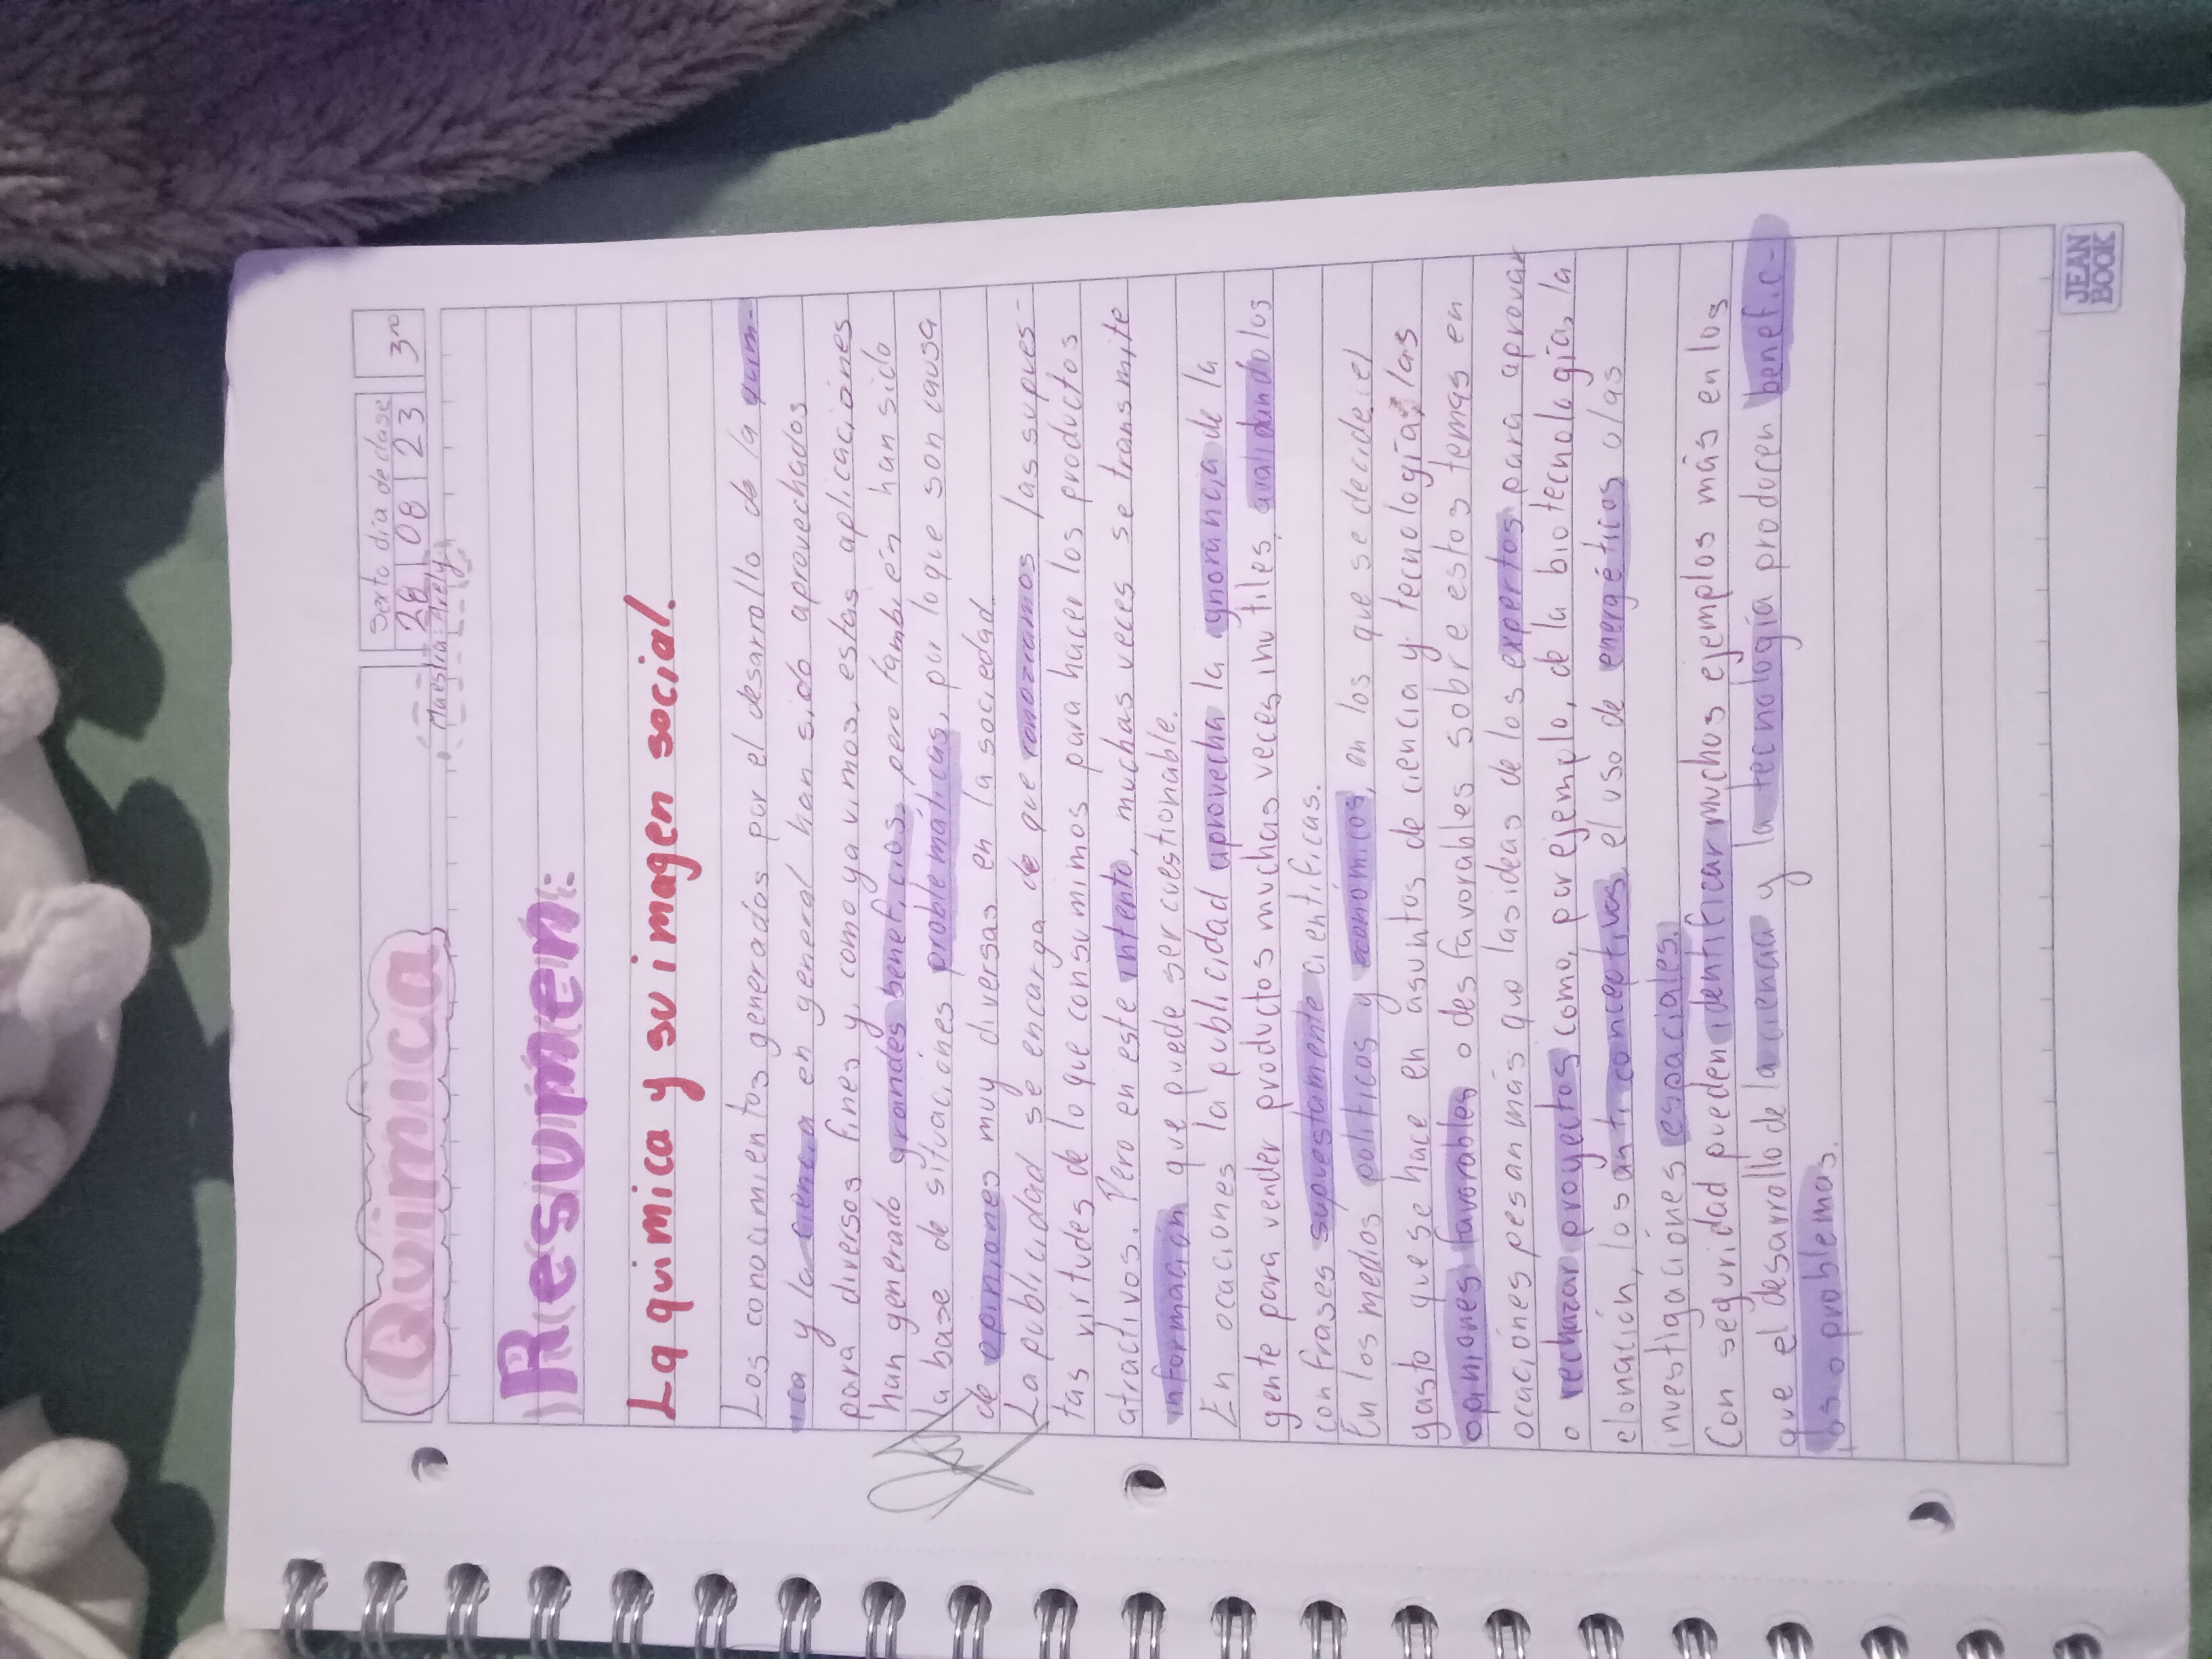 Química
Serto día de clase
28 08 23 3ro
Maestra: Arely
Resumen:
La quimica y su imagen social.
Los conocimientos generados por el desarrollo de la quím-
ica y la ciencia en general han sido aprovechados
para diversos fines y, como ya vimos, estas aplicaciones
han generado grandes beneficios, pero también han sido
la base de situaciones problemáticas, por lo que son causa
de opiniones muy diversas en la sociedad.
La publicidad se encarga de que conozcamos las supues-
tas virtudes de lo que consumimos para hacer los productos
atractivos. Pero en este intento, muchas veces se transmite
información que puede ser cuestionable.
En ocaciones la publicidad aprovecha la ignorancia de la
gente para vender productos muchas veces inutiles, avalandolos
con frases supuestamente cientificas.
En los medios politicos y económicos, en los que se decide el
gasto que se hace en asuntos de ciencia y tecnología, las
opiniones favorables o desfavorables sobre estos temas en
ocaciónes pesan más que las ideas de los expertos para aprovar
o rechazar proyectos como, por ejemplo, de la biotecnología, la
clonación, los anticonceptivos, el uso de energéticos o las
investigaciónes espaciales.
Con seguridad pueden identificar muchos ejemplos más en los
que el desarrollo de la ciencia y la tecnología producen benefic-
ios o problemas.
JEAN
BOOK